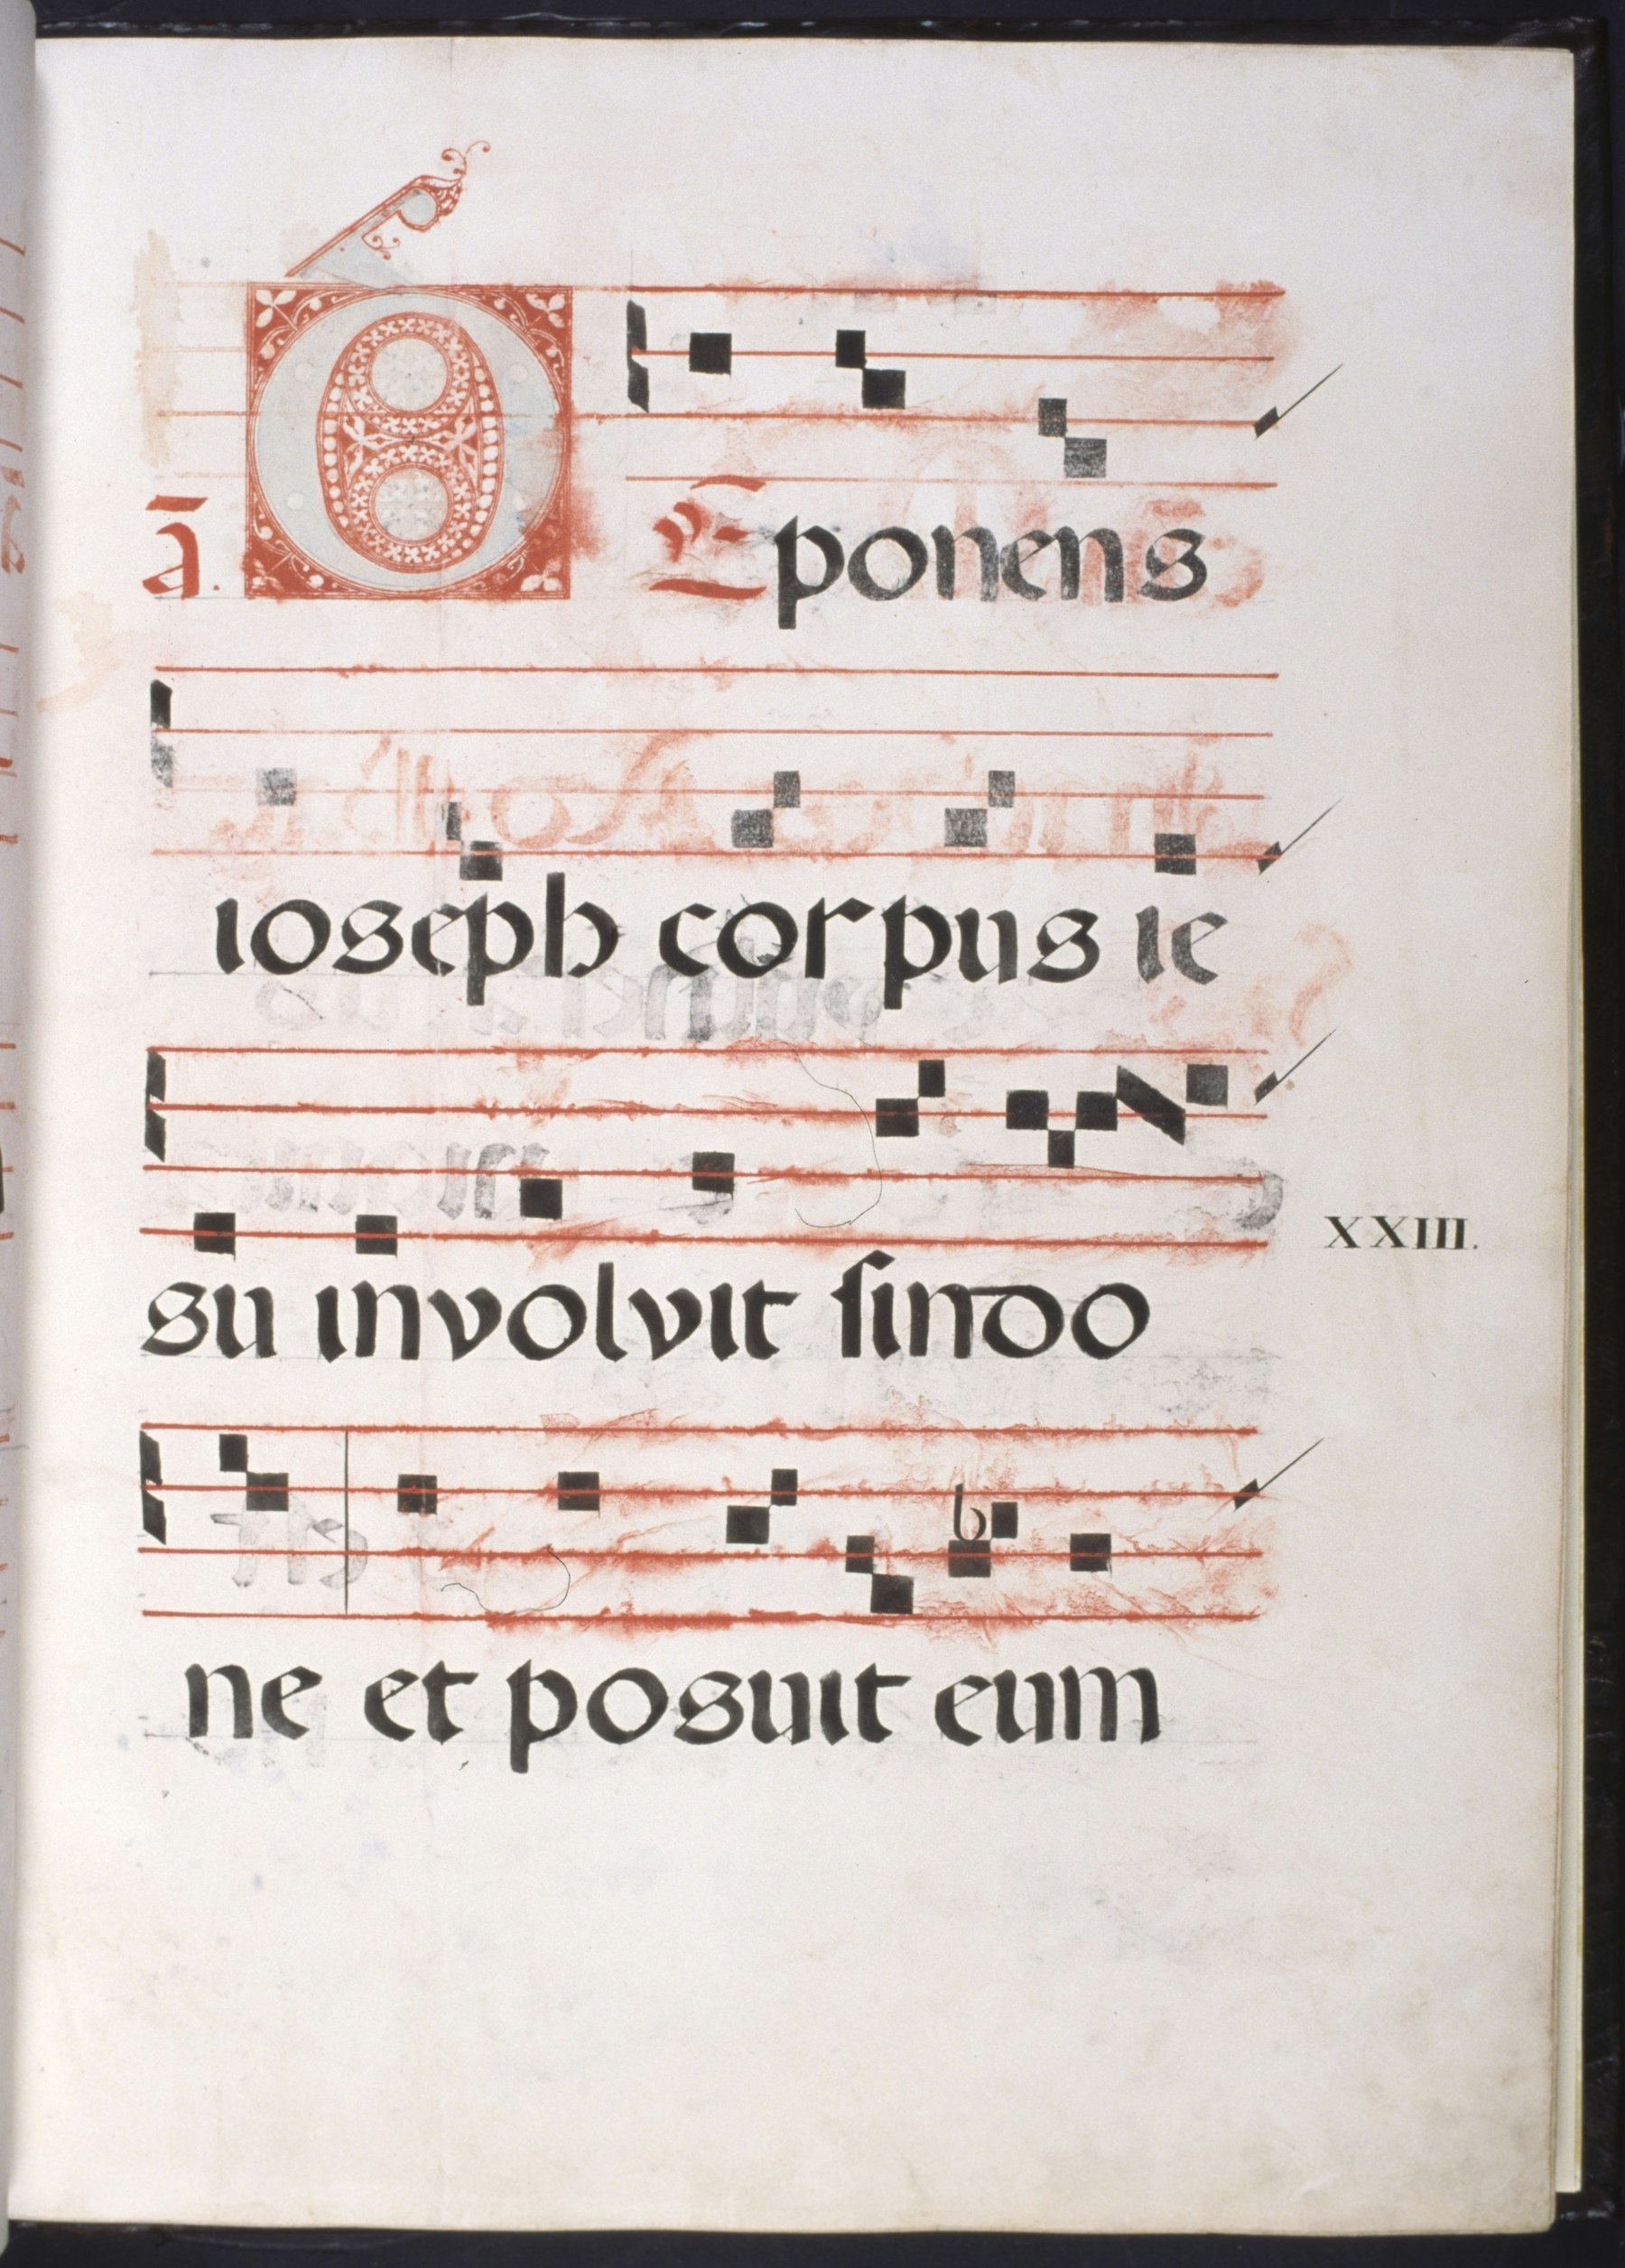 ā. DEponens
ioseph corpus ie
su involvit ſindo
XXIII.
ne et posuit eum